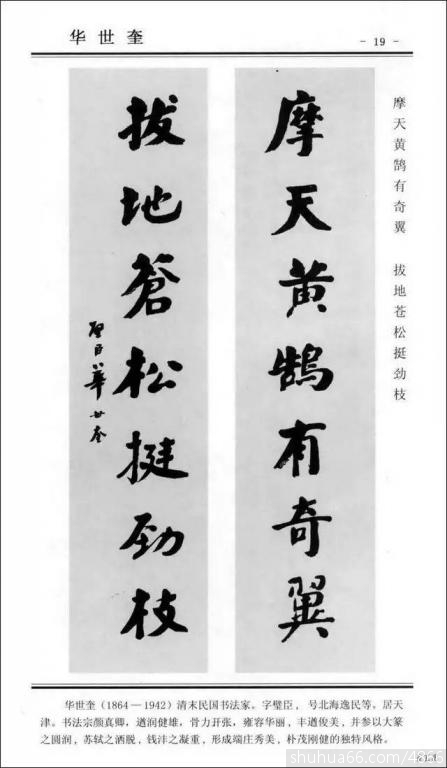 华世奎
- 19 -
摩天黄鹄有奇翼 拔地苍松挺劲枝
摩天黄鹄有奇翼
拔地蒼松挺劲枝
璧臣华世奎
华世奎（1864—1942）清末民国书法家。字璧臣，号北海逸民等。居天
津。书法宗颜真卿，遒润健雄，骨力开张，雍容华丽，丰遒俊美，并参以大篆
之圆润，苏轼之洒脱，钱沣之凝重，形成端庄秀美，朴茂刚健的独特风格。